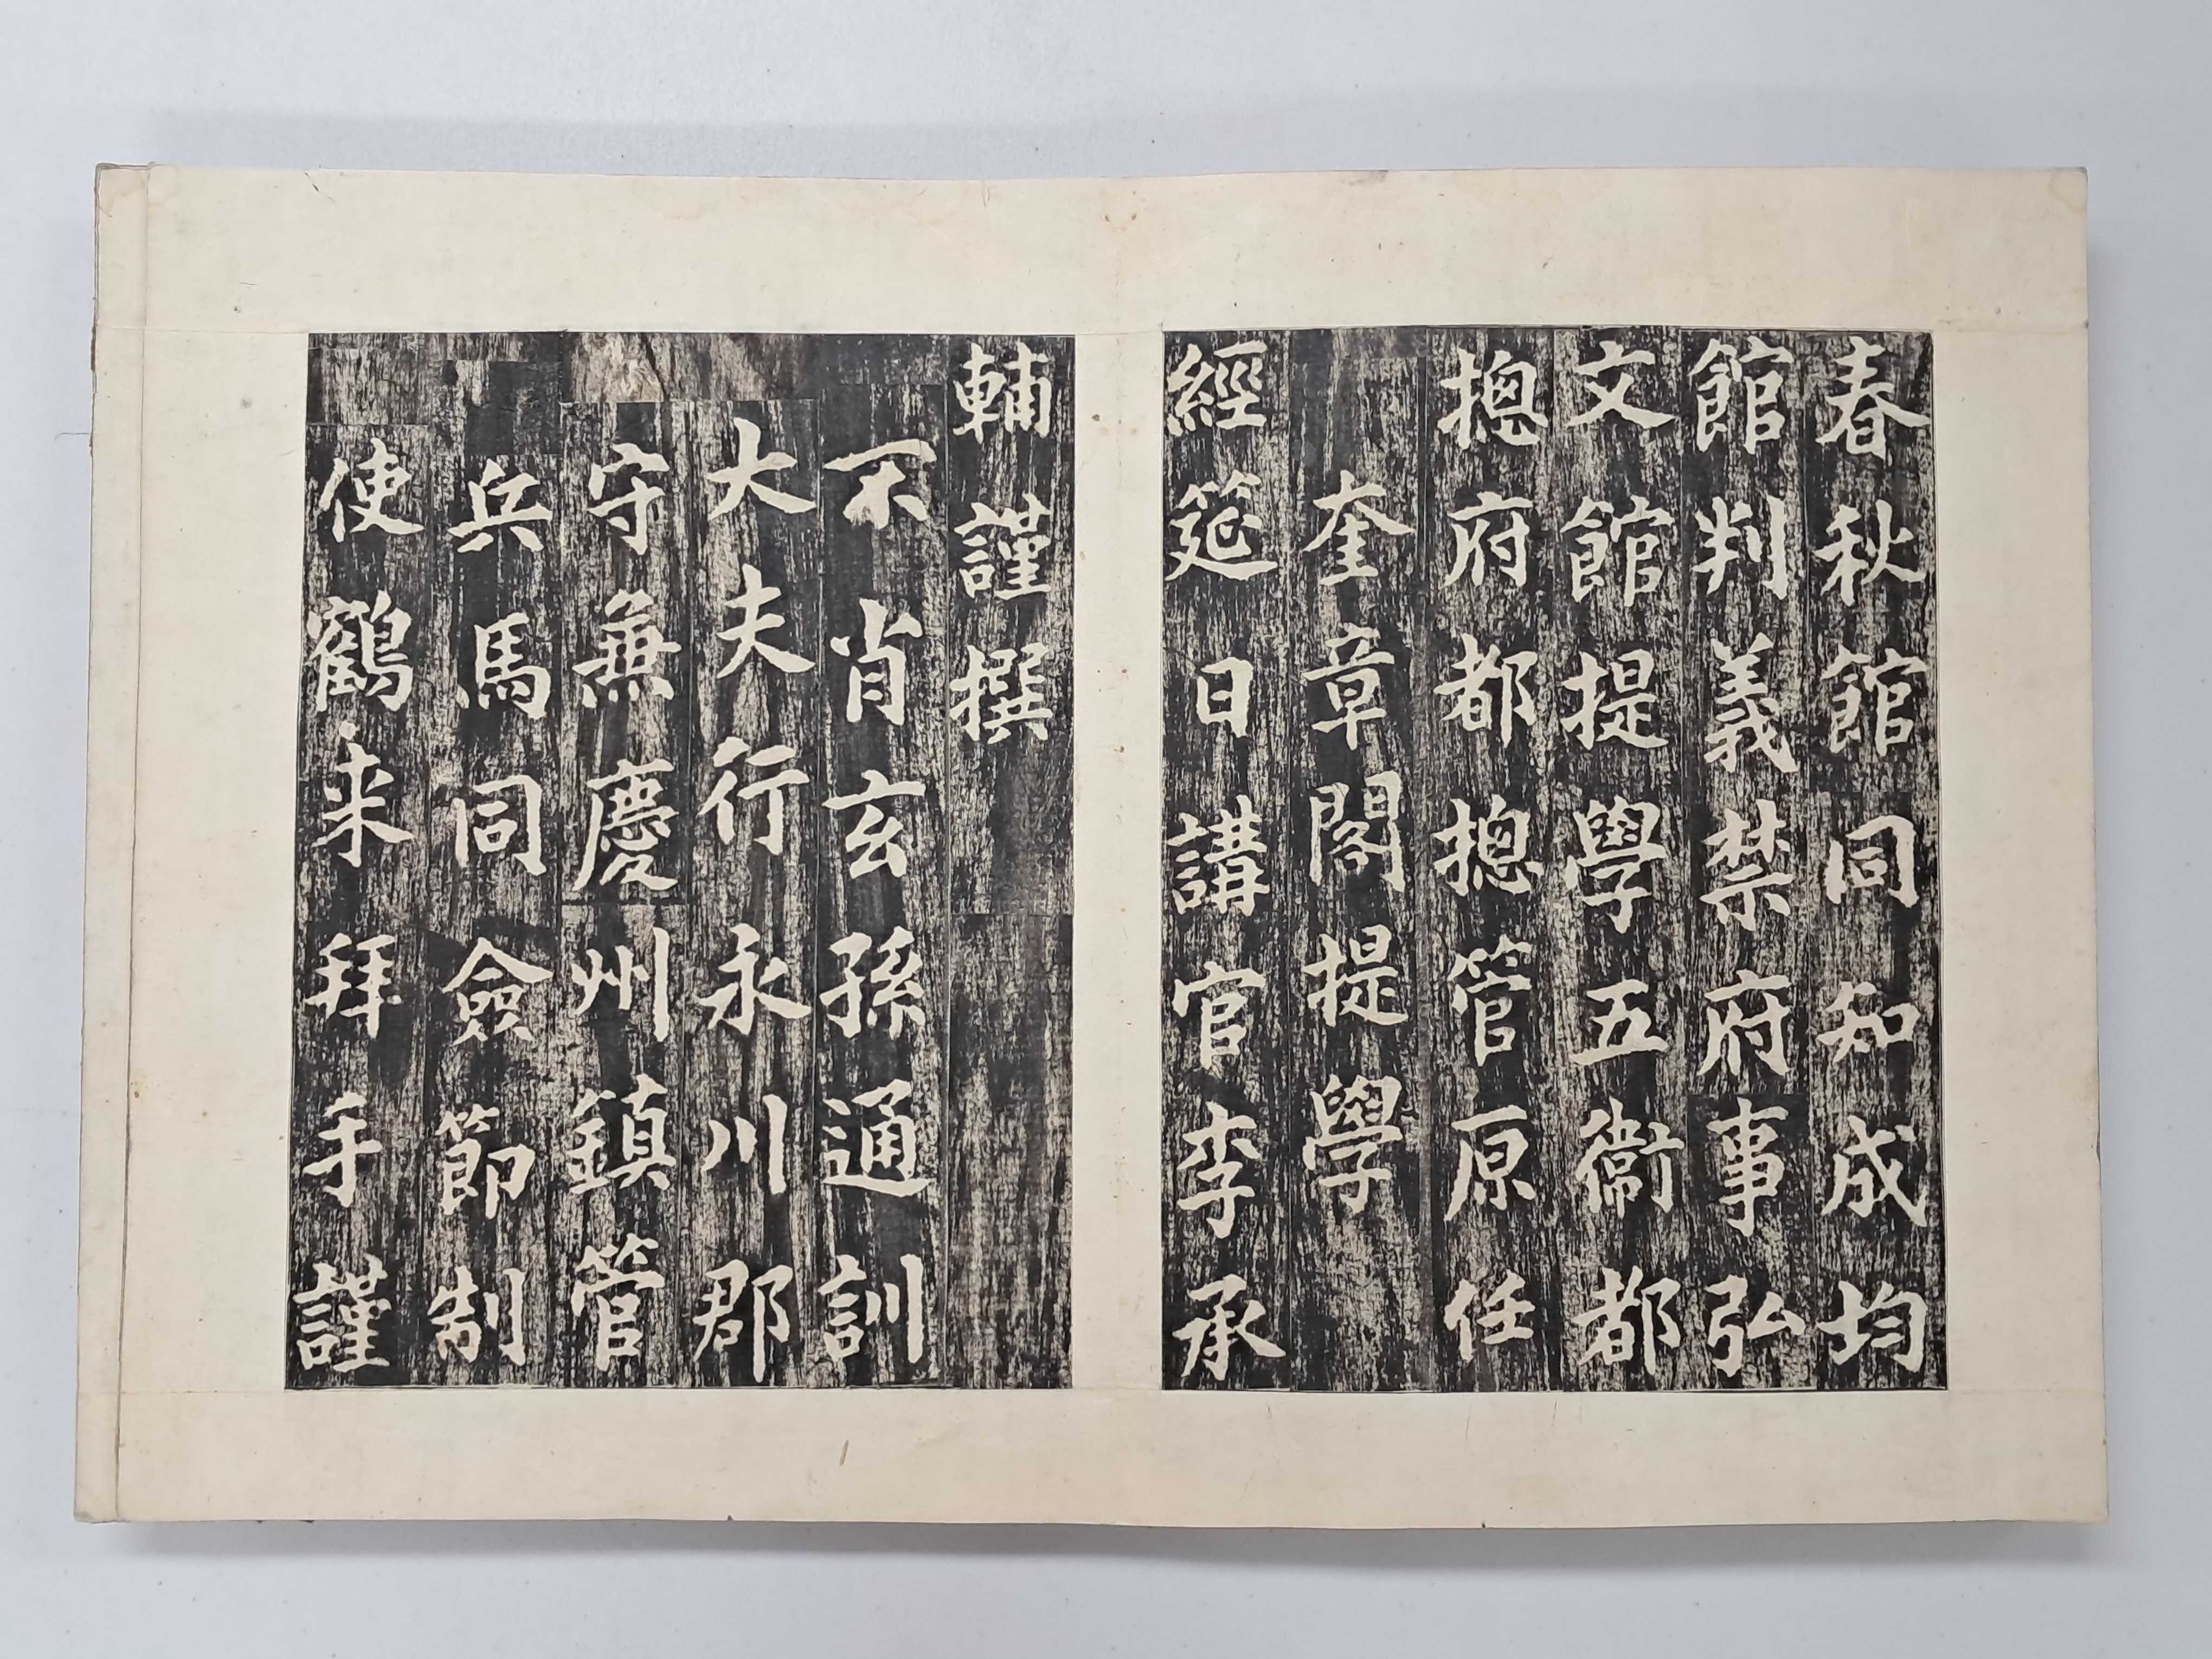 春秋館同知成均
館判義禁府事弘
文館提學五衛都
摠府都摠管原任
奎章閣提學
經筵日講官李承
輔謹撰
不肖玄孫通訓
大夫行永川郡
守兼慶州鎮管
兵馬同僉節制
使鶴来拜手謹